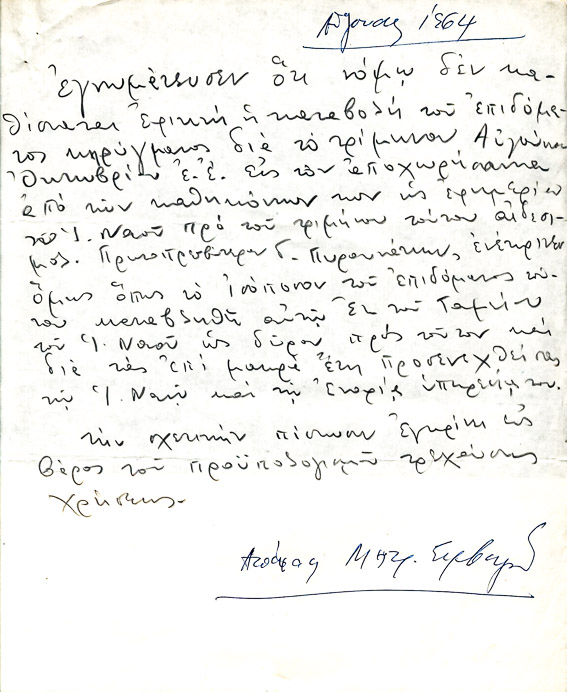 Αὔγουστος 1964
Ἐγνωμάτευσεν ὅτι νόμῳ δὲν κα-
θίσταται ἐφικτὴ ἡ καταβολὴ τοῦ ἐπιδόμα-
τος κηρύγματος διὰ τὸ τρίμηνον Αὐγούστου
Ὀκτωβρίου ἐ.ἔ. εἰς τὸν ἀποχωρήσαντα
ἀπὸ τῶν καθηκόντων του ὡς ἐφημερίου
τοῦ Ἱ. Ναοῦ πρὸ τοῦ τριμήνου τούτου αἰδεσι-
μολ. Πρωτοπρεσβύτερον Γ. ἐνέκρινεν
ὅμως ὅπως τὸ ἰσόποσον τοῦ ἐπιδόματος τού-
του καταβληθῇ αὐτῷ ἐκ τοῦ Ταμείου
τοῦ Ἱ. Ναοῦ ὡς δῶρον πρὸς τοῦτον καὶ
διὰ τὰς ἐπὶ μακρὰ ἔτη προσενεχθείσας
τῷ Ἱ. Ναῷ καὶ τῇ Ἐνορίᾳ ὑπηρεσίας του.
τὴν σχετικὴν πίστωσιν ἐγκρίνει εἰς
βάρος τοῦ προϋπολογισμοῦ τρεχούσης
χρήσεως.-
Μητρ.